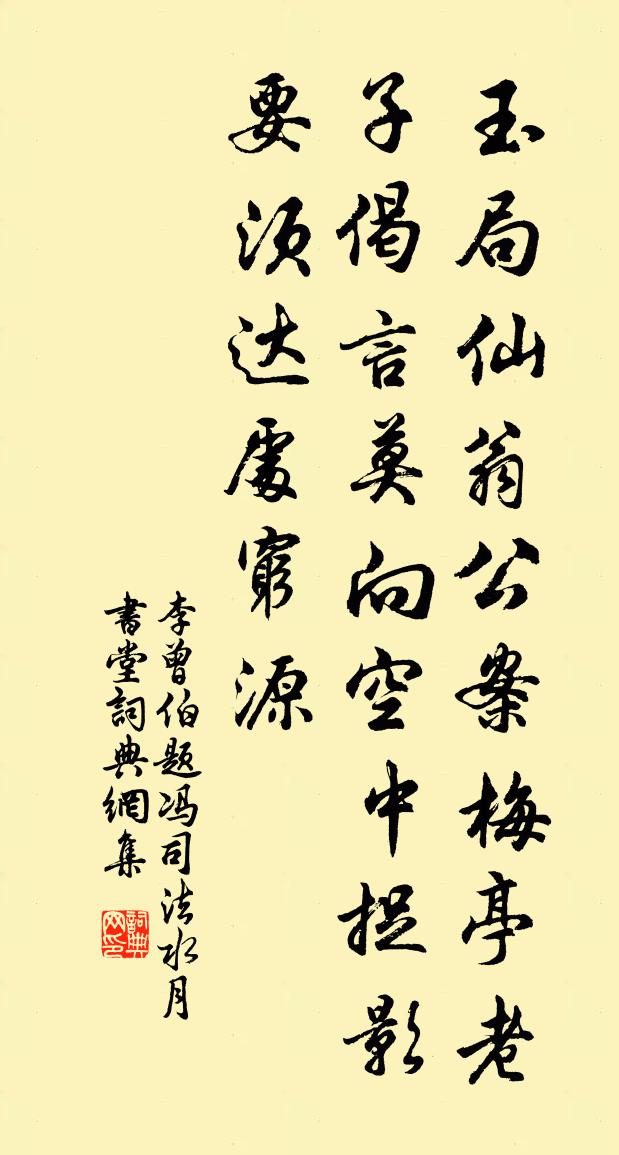 玉局仙翁公案梅亭老
子偈言莫向空中捉影
要须达處窮源
李曾伯题冯司法水月
書堂詞典網集
詞典网印